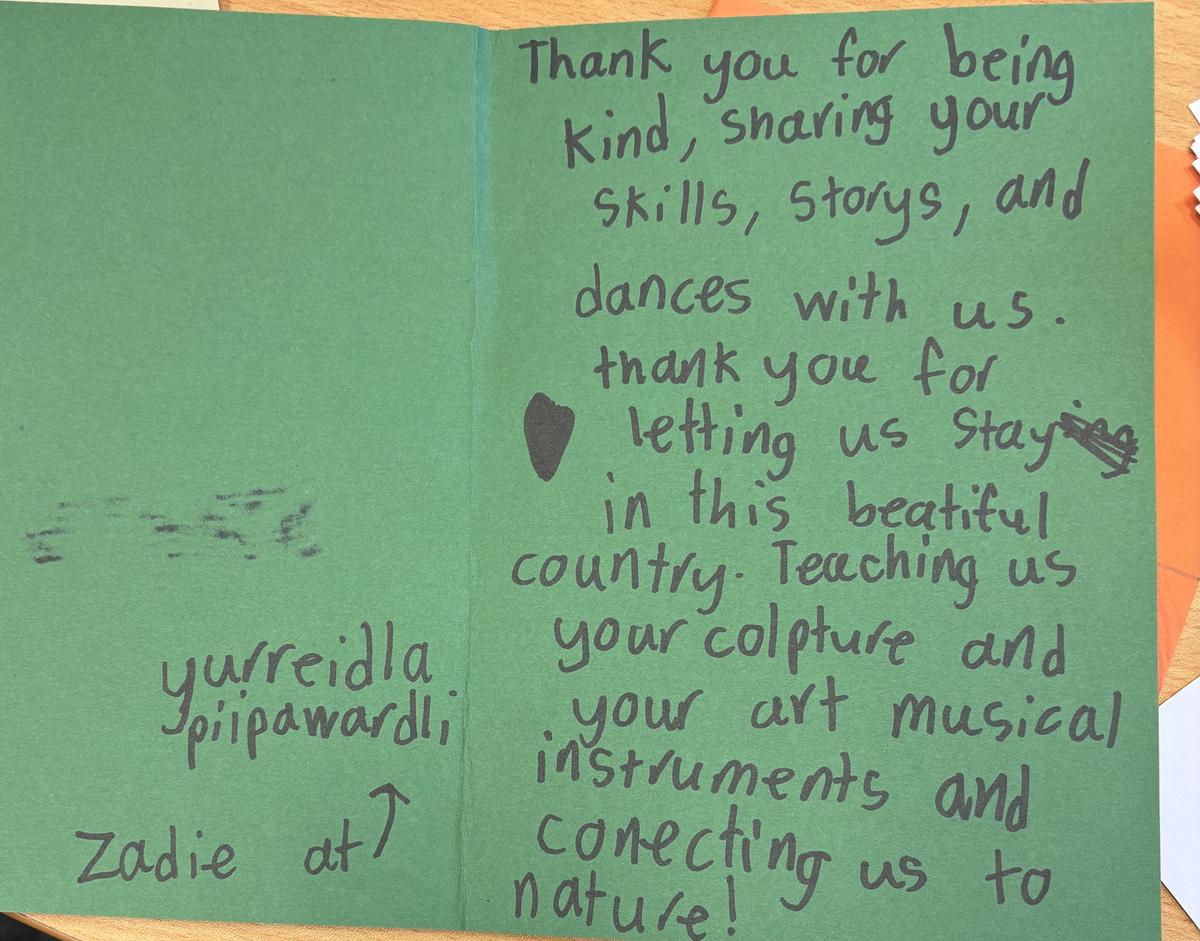 yurreidla
piipawardli
Zadie at ↑
Thank you for being
kind, sharing your
skills, storys, and
dances with us.
thank you for
letting us stay
in this beatiful
country. Teaching us
your colpture and
your art musical
instruments and
conecting us to
nature!